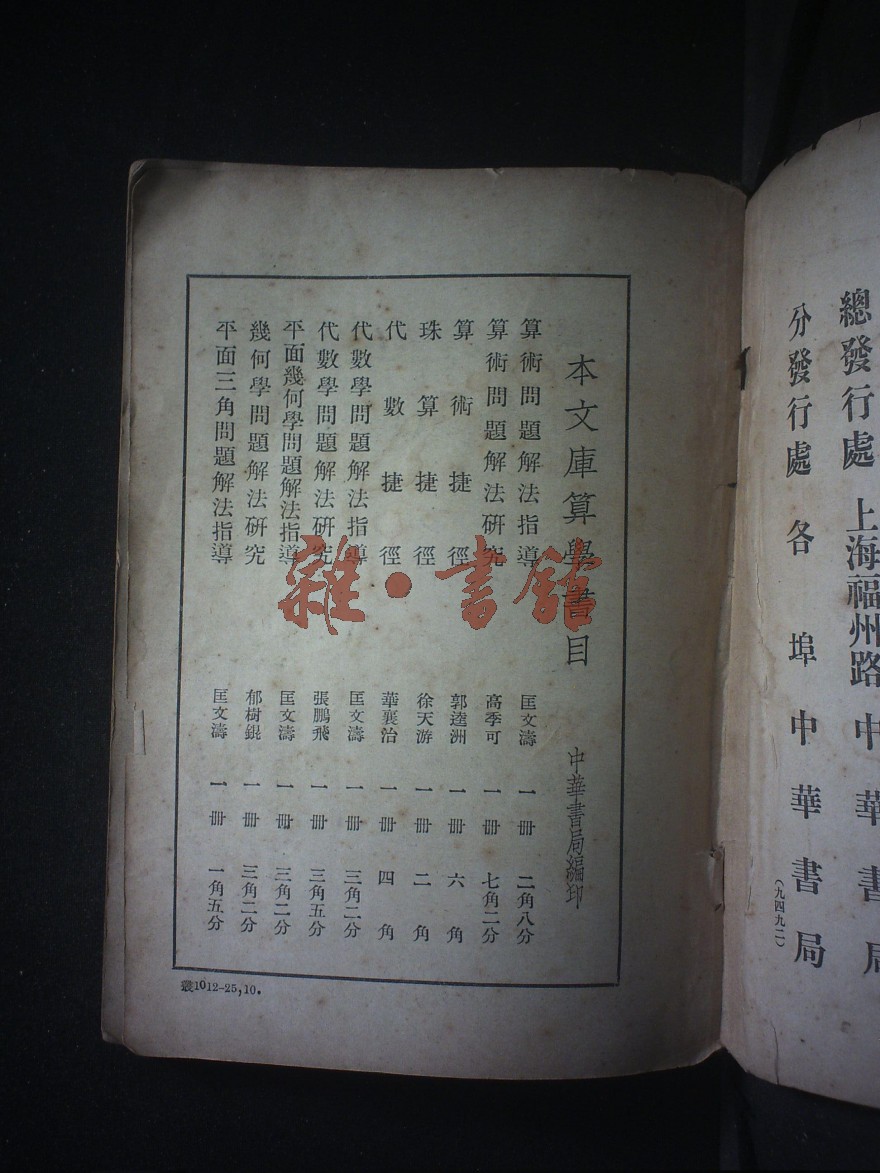 總發行處 上海福州路 中華書局
分發行處 各埠中華書局
(九四九二)
本文庫算學書目 中華書局編印
算術問題解法指導 匡文濤 一冊 二角八分
算術問題解法研究 高季可 一冊 七角二分
算術捷徑 郭逵洲 一冊 六角
珠算捷徑 徐天游 一冊 二角
代數捷徑 華襄治 一冊 四角
代數學問題解法指導 匡文濤 一冊 三角二分
代數學問題解法研究 張鵬飛 一冊 三角五分
平面幾何學問題解法指導 匡文濤 一冊 三角二分
幾何學問題解法研究 郁樹錕 一冊 三角二分
平面三角問題解法指導 匡文濤 一冊 一角五分
叢1012-25,10.
雜·書館